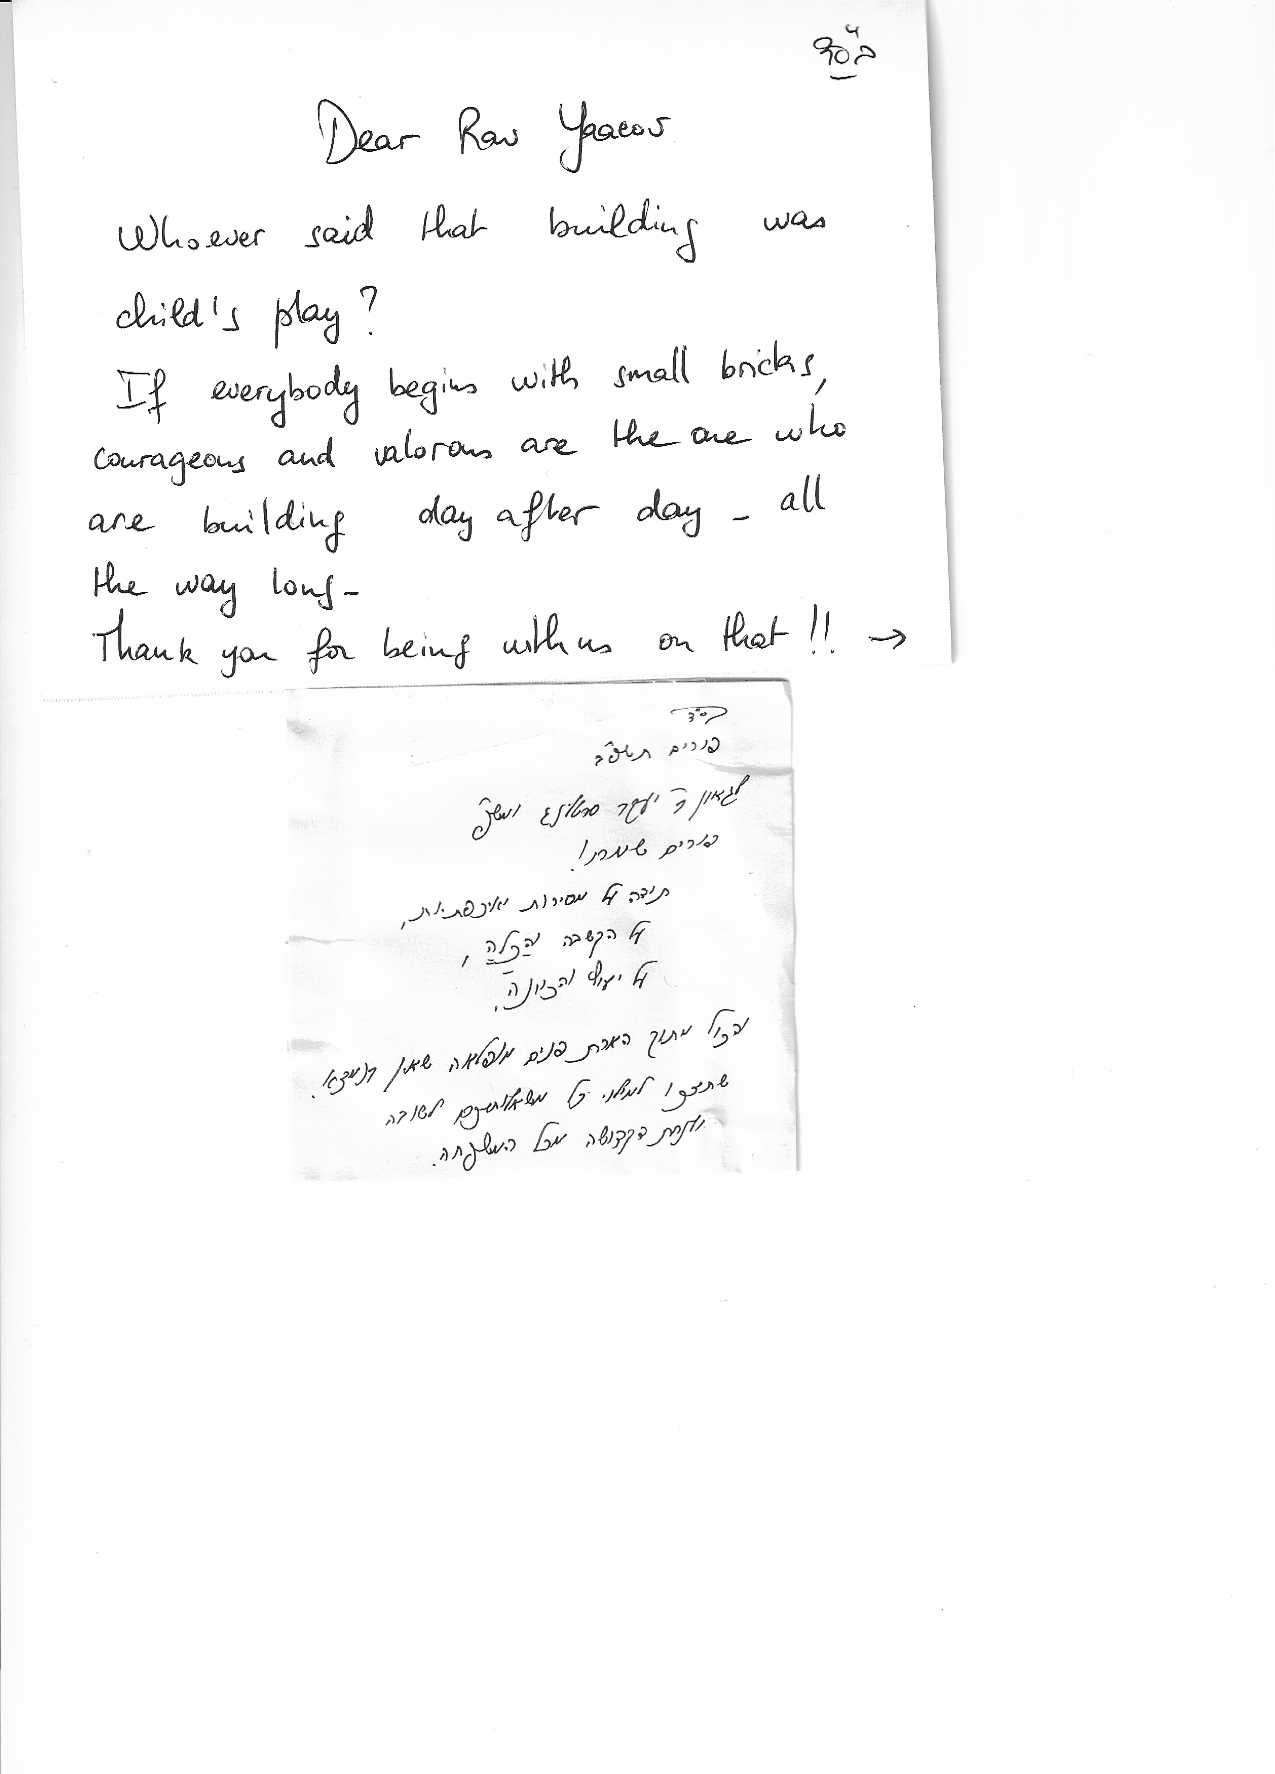 בס"ד
Dear Rav Yaacov
Whoever said that building was
child's play?
If everybody begins with small bricks,
courageous and valorous are the one who
are building day after day - all
the way long -
Thank you for being with us on that !! →
בס"ד
פורים תשפ"ב
לגאון ר' יעקב ומשפ'
פורים שמח!
תודה על מסירות ואיכפתיות,
על הקשבה והכלה,
על יעוץ והכוונה,
והכול מתוך הארת פנים מופלאה שאין דוגמתה.
שתזכו למילוי כל משאלותיכם לטובה
מכל המשפחה.